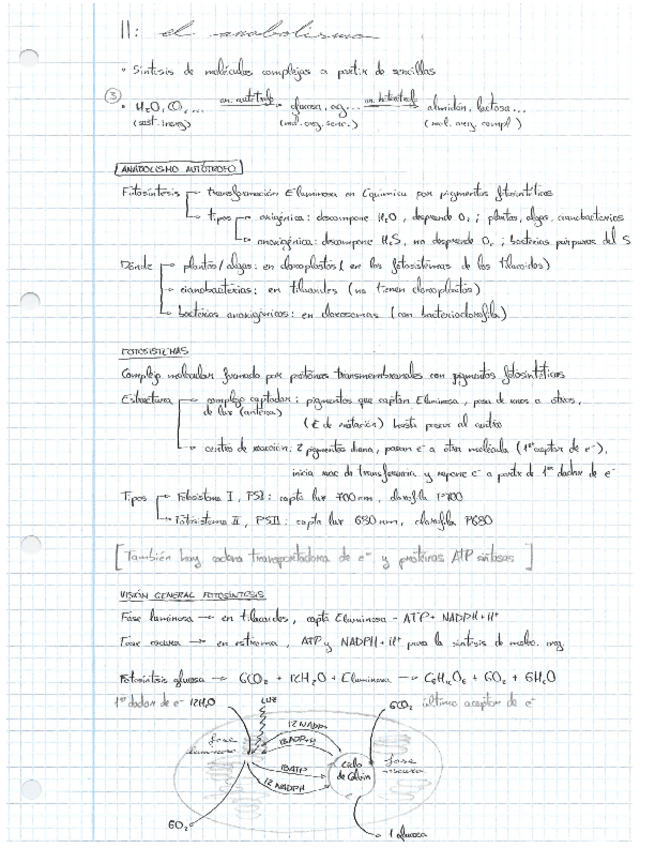 11: el anabolismo
• Síntesis de moléculas complejas a partir de sencillas
③ • H₂O, CO₂... an. autótrofo → glucosa, ag... an. heterótrofo → almidón, lactosa...
(sust. inorg) (mol. org. senc.) (mol. org. compl)
ANABOLISMO AUTÓTROFO
Fotosíntesis transformación E luminosa en E química por pigmentos fotosintéticos
tipos oxigénica: descompone H₂O, desprende O₂; plantas, algas, cianobacterias
anoxigénica: descompone H₂S, no desprende O₂; bacterias púrpuras del S
Dónde plantas/algas: en cloroplastos (en los fotosistemas de los tilacoides)
cianobacterias: en tilacoides (no tienen cloroplastos)
bacterias anoxigénicas: en clorosomas (con bacterioclorofila)
FOTOSISTEMAS
Complejo molecular formado por proteínas transmembranales con pigmentos fotosintéticos
Estructura complejo captador: pigmentos que captan E luminosa, pasa de unos a otros,
de luz (antena) (E de excitación) hasta pasar al centro
centro de reacción: 2 pigmentos diana, pasan e⁻ a otra molécula (1er aceptor de e⁻),
inicia de transferencia y repone e⁻ a partir de 1er dador de e⁻
Tipos Fotosistema I, PSI: capta luz 700nm, clorofila P700
Fotosistema II, PSII: capta luz 680nm, clorofila P680
[También hay cadena transportadora de e⁻ y proteínas ATP sintasas]
VISIÓN GENERAL FOTOSÍNTESIS
Fase luminosa → en tilacoides, capta E luminosa - ATP + NADPH + H⁺
Fase oscura → en estroma, ATP y NADPH + H⁺ para la síntesis de moléc. org.
Fotosíntesis glucosa → 6CO₂ + 12H₂O + E luminosa → C₆H₁₂O₆ + 6O₂ + 6H₂O
1er dador de e⁻ 12H₂O LUZ 6CO₂ último aceptor de e⁻
12 NADP+
fase luminosa 18ADP+Pi ciclo de Calvin fase oscura
18ATP
12 NADPH
6O₂ 1 glucosa